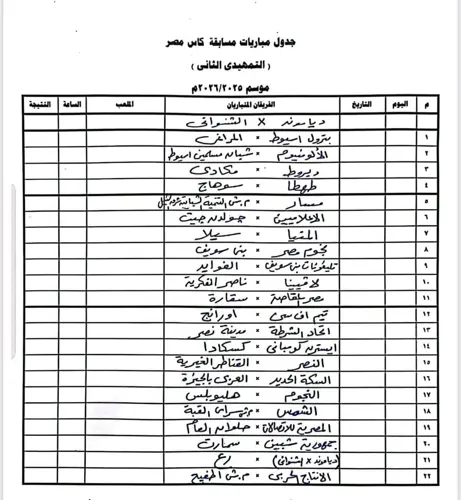 جدول مباريات مسابقة كاس مصر
( التمهيدى الثانى )
موسم ٢٠٢٦/٢٠٢٥م
م اليوم التاريخ الفريقان المتباريان الملعب الساعة النتيجة
دياموند × الشنوانى
١ بترول اسيوط × المراغى
٢ الألومنيوم × شبان مسلمين اسيوط
٣ ديروط ×
٤ طهطا × سوهاج
٥ مسار × م.ش التنمية الشبابية
٦ الاعلاميين × جولدن جيت
٧ المنيا × سيلا
٨ نجوم مصر × بنى سويف
٩ تليفونات بنى سويف × الفوايد
١٠ لافيينا × ناصر الفكرية
١١ مصر بالمقاصة × سقارة
١٢ تيم اف سى × اورانج
١٣ اتحاد الشرطة × مدينة نصر
١٤ ايسترن كومبانى × كسكادا
١٥ النصر × القناطر الخيرية
١٦ السكة الحديد × العربى بالجيزة
١٧ النجوم × هليوبلس
١٨ الشمس × القبة
١٩ المصرية للاتصالات × حلوان العام
٢٠ جمهورية شبين × سمارت
٢١ (دياموند × الشنوانى) × رع
٢٢ الانتاج الحربى × م.ش